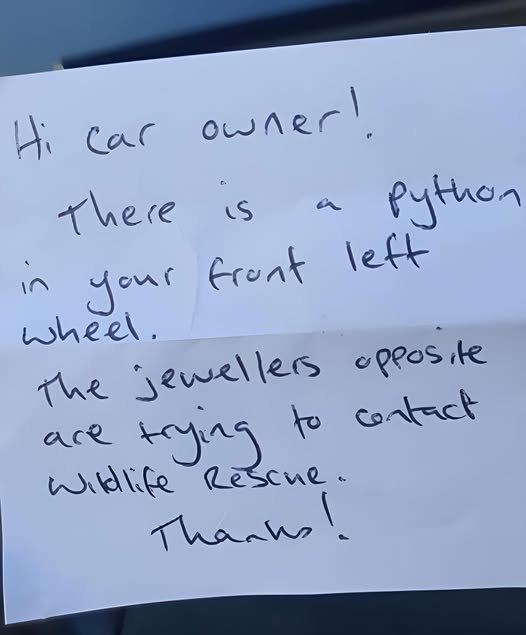 Hi car owner!
There is a python
in your front left
wheel.
The jewellers opposite
are trying to contact
Wildlife Rescue.
Thanks!